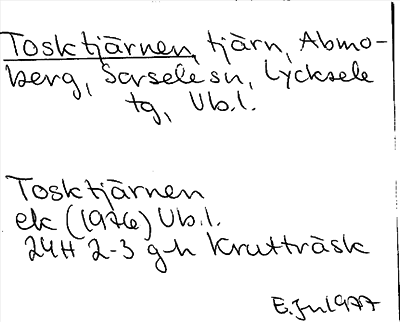 Tosktjärnen, tjärn, Abmo-
berg, Sorsele sn, Lycksele
tg, Vb.l.
Tosktjärnen
ek (1976) Vb.l.
24H 2-3 g-h Krutträsk
E.Jn 1977